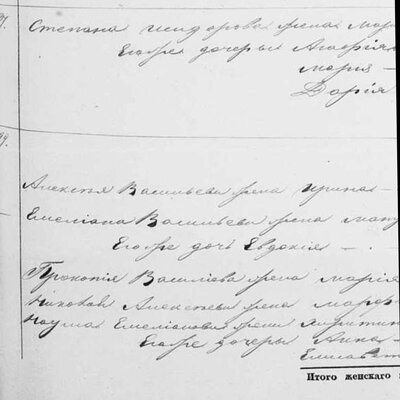 Степана Исидорова жена Мари
Егоже дочери Агафия
Мария —
Дарія
Алексея Васильева жена Ирина —
Емелиана Васильева жена Мат
Егоже дочь Евдокия — . —
Прокопія Василіева жена Марія
Алексеева жена Мар
Наума Емелианова жена
Егоже дочери Анна
Елисавет
Итого женскаго